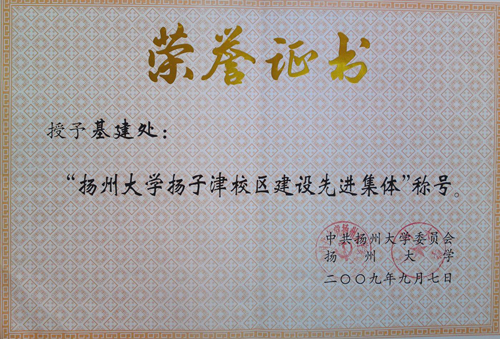 荣誉证书
授予基建处：
“扬州大学扬子津校区建设先进集体”称号。
中共扬州大学委员会
扬州大学
二〇〇九年九月七日